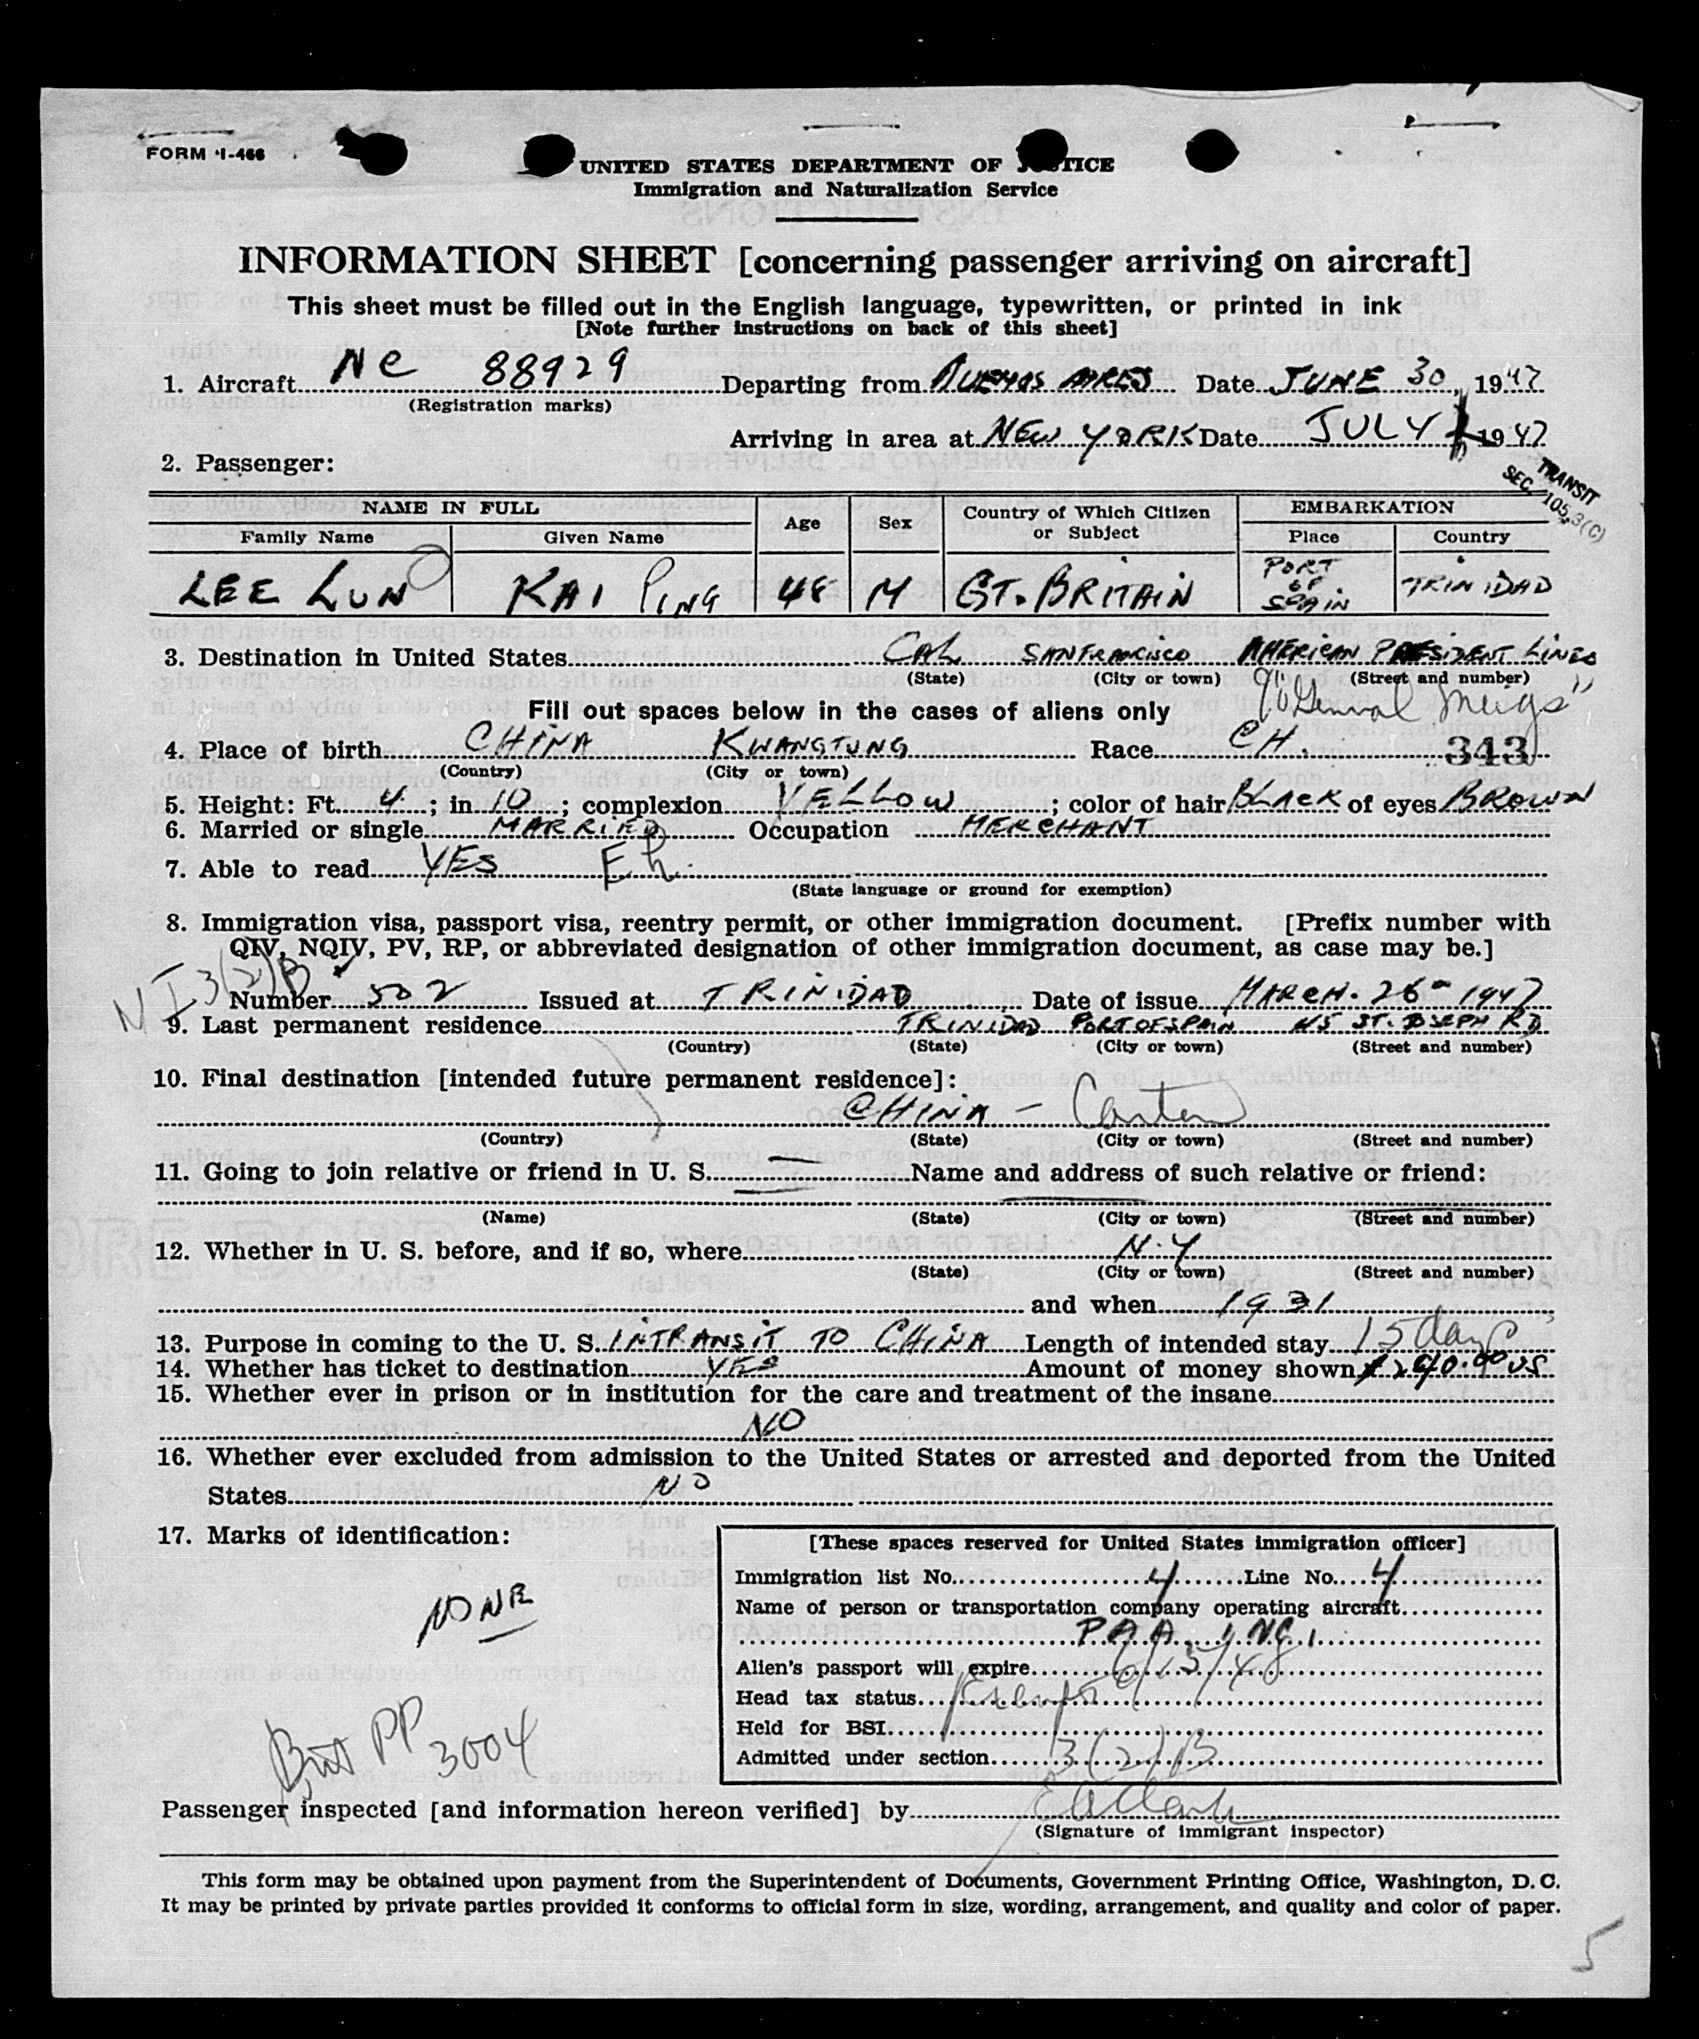 FORM I-466
UNITED STATES DEPARTMENT OF JUSTICE
Immigration and Naturalization Service
INFORMATION SHEET [concerning passenger arriving on aircraft]
This sheet must be filled out in the English language, typewritten, or printed in ink
[Note further instructions on back of this sheet]
1. Aircraft NC 88929 Departing from BUENOS AIRES Date JUNE 30, 1947
(Registration marks)
Arriving in area at NEW YORK Date JULY 1 1947
2. Passenger:
TRANSIT
SEC. 105.3(C)
NAME IN FULL Age Sex Country of Which Citizen or Subject EMBARKATION
Family Name Given Name Place Country
LEE LUN KAI PING 48 M GT. BRITAIN PORT OF SPAIN TRINIDAD
3. Destination in United States CAL SANFRANCISCO AMERICAN PRESIDENT LINES
(State) (City or town) (Street and number)
"General Meigs"
Fill out spaces below in the cases of aliens only
4. Place of birth CHINA KWANGTUNG Race CH. 343
(Country) (City or town)
5. Height: Ft. 4 ; in 10 ; complexion YELLOW ; color of hair BLACK of eyes BROWN
6. Married or single MARRIED Occupation MERCHANT
7. Able to read YES Eh.
(State language or ground for exemption)
8. Immigration visa, passport visa, reentry permit, or other immigration document. [Prefix number with
QIV, NQIV, PV, RP, or abbreviated designation of other immigration document, as case may be.]
NI 3(2)B
Number 502 Issued at TRINIDAD Date of issue MARCH. 26 1947
9. Last permanent residence TRINIDAD PORT OF SPAIN 45 ST. JOSEPH RD
(Country) (State) (City or town) (Street and number)
10. Final destination [intended future permanent residence]:
CHINA - Canton
(Country) (State) (City or town) (Street and number)
11. Going to join relative or friend in U. S. Name and address of such relative or friend:
(Name) (State) (City or town) (Street and number)
12. Whether in U. S. before, and if so, where N.Y
(State) (City or town) (Street and number)
and when 1931
13. Purpose in coming to the U. S. INTRANSIT TO CHINA Length of intended stay 15 days
14. Whether has ticket to destination YES Amount of money shown $290.00 US
15. Whether ever in prison or in institution for the care and treatment of the insane
NO
16. Whether ever excluded from admission to the United States or arrested and deported from the United
States NO
17. Marks of identification:
NONE
Brit PP 3004
[These spaces reserved for United States immigration officer]
Immigration list No. 4 Line No. 4
Name of person or transportation company operating aircraft
PAA INC.
Alien's passport will expire 6/15/48
Head tax status Exempt
Held for BSI
Admitted under section 3(2)B
Passenger inspected [and information hereon verified] by
(Signature of immigrant inspector)
This form may be obtained upon payment from the Superintendent of Documents, Government Printing Office, Washington, D. C.
It may be printed by private parties provided it conforms to official form in size, wording, arrangement, and quality and color of paper.
5